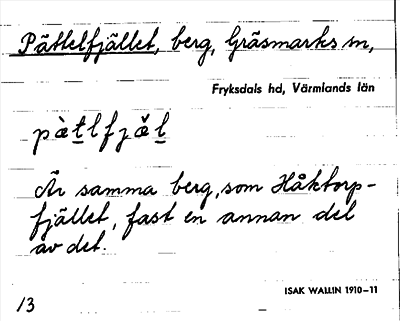 Pättelfjället, berg, Gräsmarks sn,
Fryksdals hd, Värmlands län
pàt̲lfjǎl̲
Är samma berg, som Håktorp-
fjället, fast en annan del
av det.
ISAK WALLIN 1910-11
13